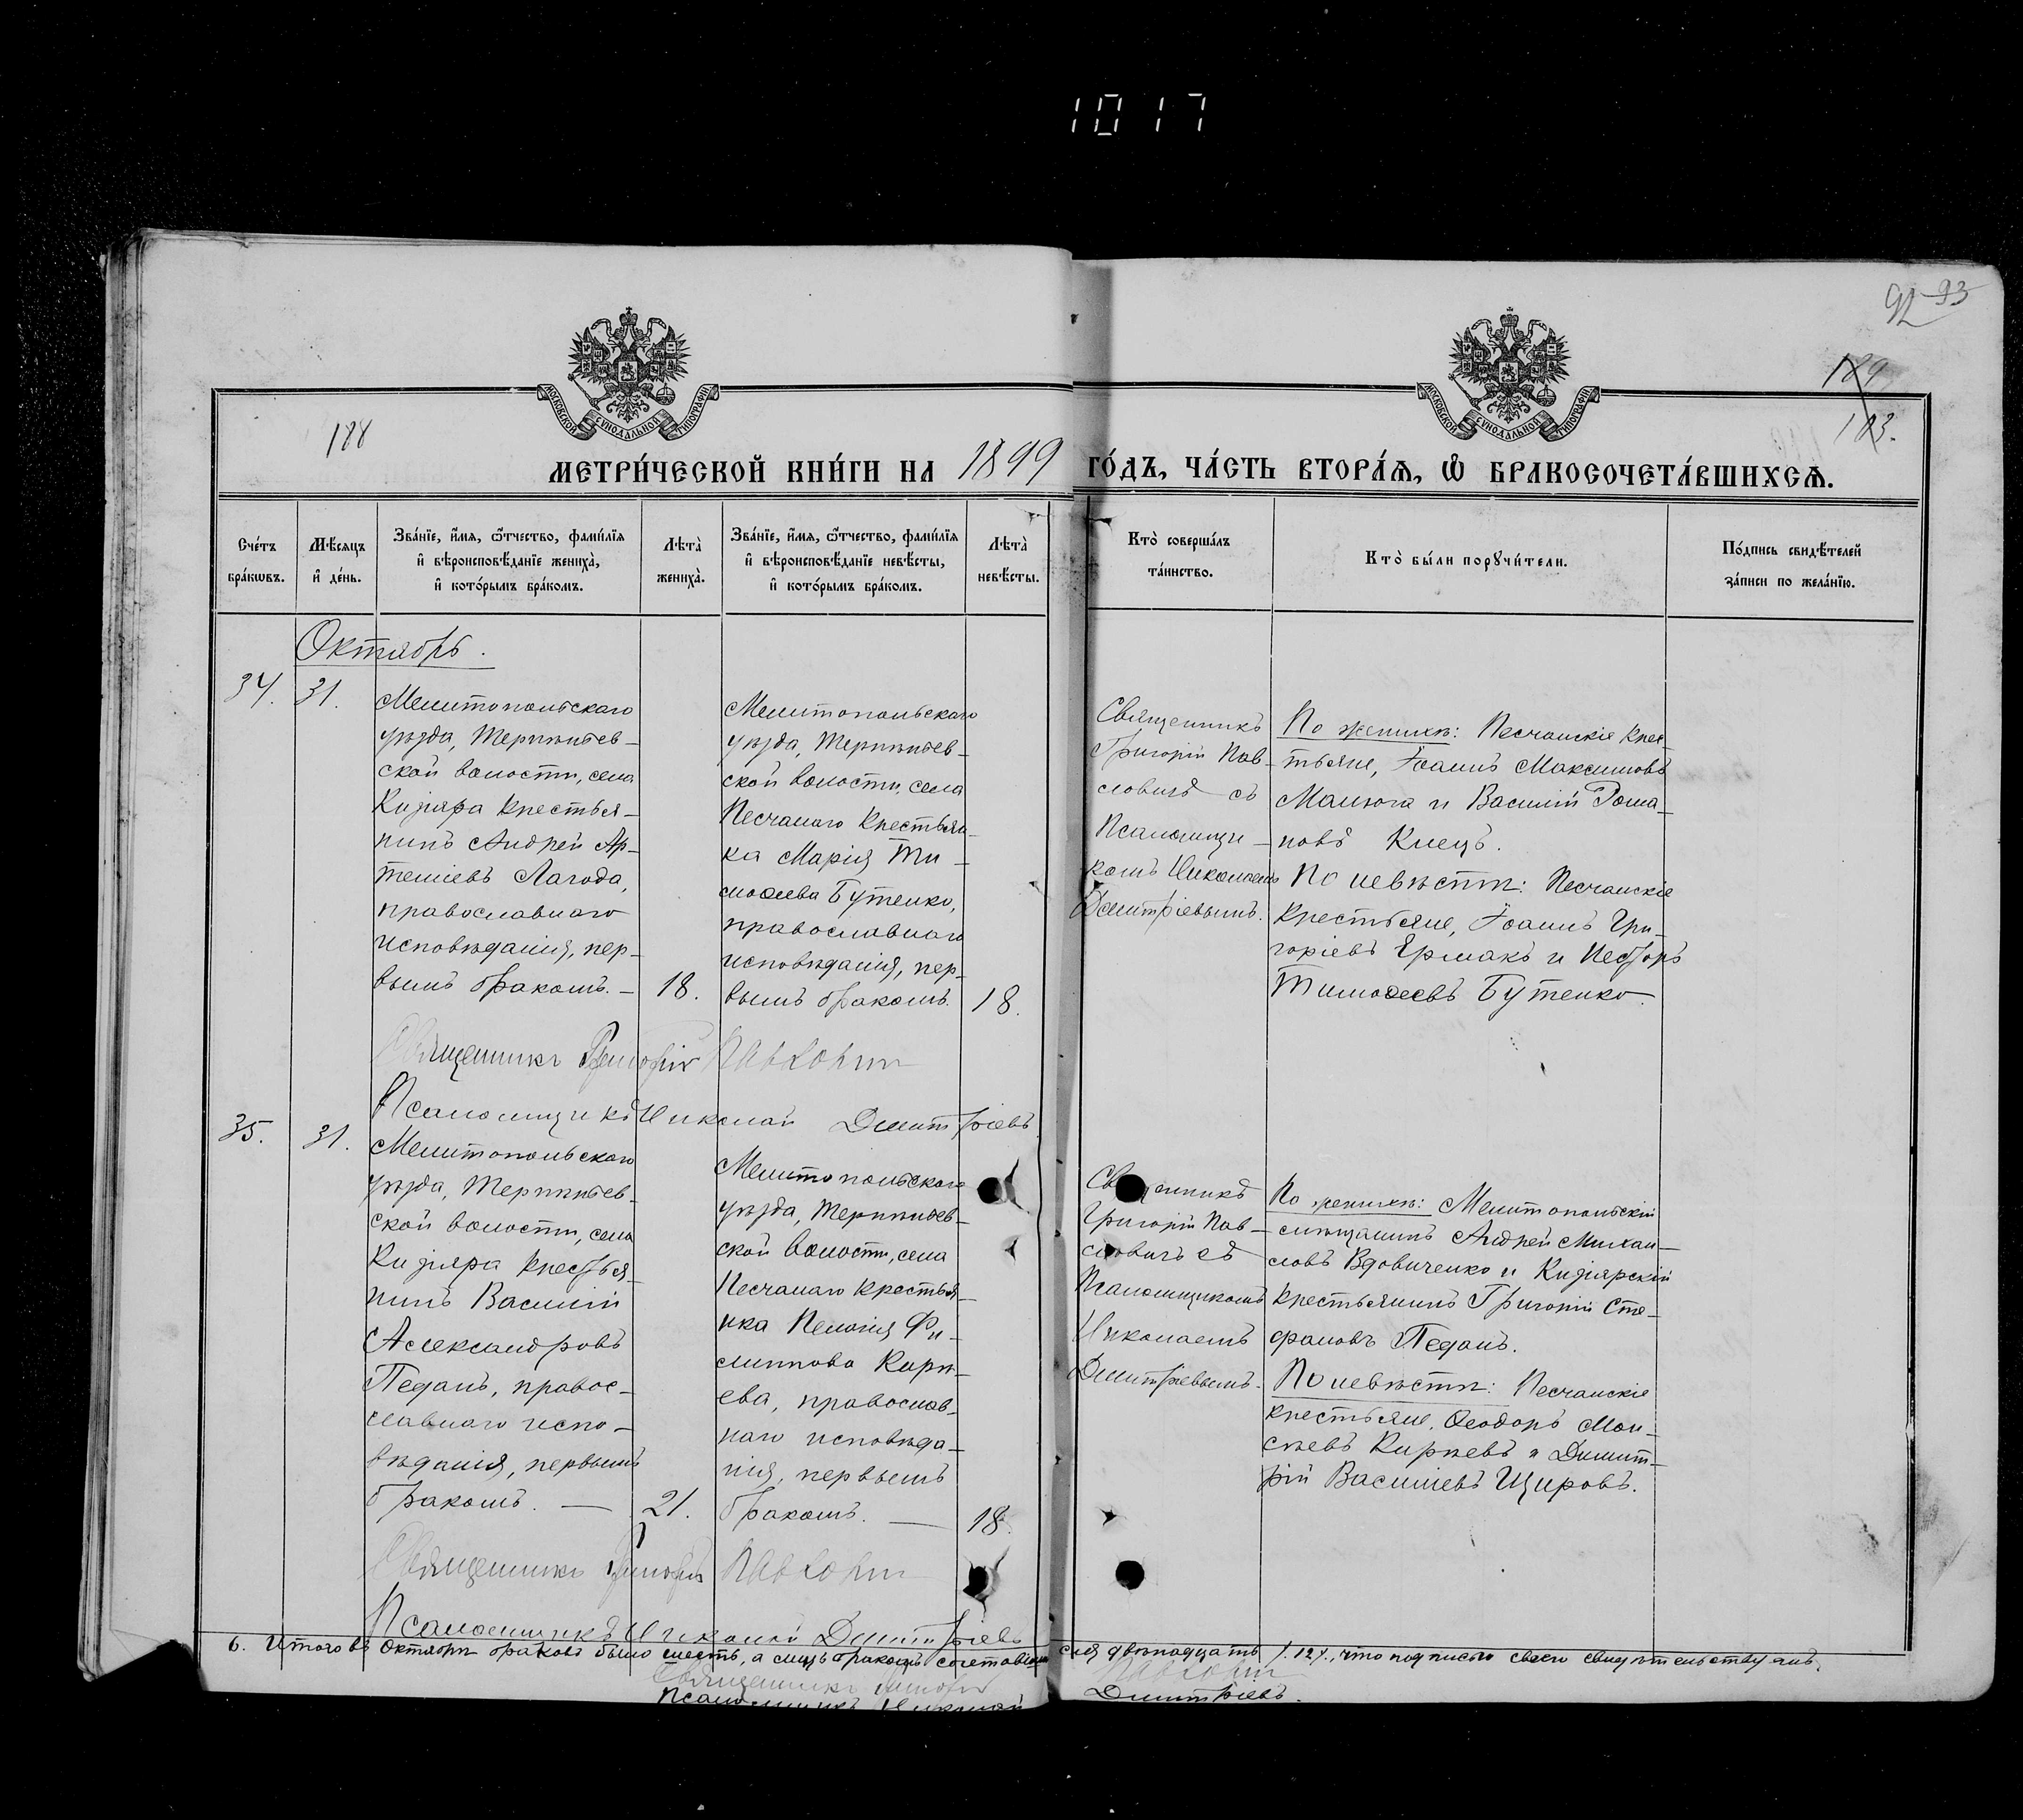 1017
92 93
189
183.
188
МОСКОВСКОЙ СѴНОДАЛЬНОЙ ТИПОГРАФІИ.
МОСКОВСКОЙ СѴНОДАЛЬНОЙ ТИПОГРАФІИ.
МЕТРИ́ЧЕСКОЙ КНИ́ГИ НА 1899 ГО́ДЪ, ЧА́СТЬ ВТОРА́Я, Ѽ БРАКОСОЧЕТА́ВШИХСѦ.
Сче́тъ
бра́кѡвъ.
Мѣ́сяцъ
и҆ де́нь.
Зва́нїе, и҆́мя, ѻ҆́тчество, фами́лїя
и҆ вѣроисповѣ́данїе жениха̀,
и҆ кото́рымъ бра́комъ.
Лѣта̀
жениха̀.
Зва́нїе, и҆́мя, ѻ҆́тчество, фами́лїя
и҆ вѣроисповѣ́данїе невѣ́сты,
и҆ кото́рымъ бра́комъ.
Лѣта̀
невѣ́сты.
Кто̀ соверша́лъ
та́инство.
Кто̀ бы́ли порꙋчи́тели.
По́дпись свидѣ́телей
за́писи по жела́нїю.
Октябрь.
34.
31.
Мелитопольскаго
уѣзда, Терпѣньев-
ской волости, села
Кизіяра крестья-
нинъ Андрей Ар-
темиевъ Лагода,
православнаго
исповѣданія, пер-
вымъ бракомъ. —
18.
Мелитопольскаго
уѣзда, Терпѣньев-
ской волости, села
Песчанаго крестьян-
ка Марія Ти-
моѳеева Бутенко,
православнаго
исповѣданія, пер-
вымъ бракомъ.
18.
Священникъ
Григорій Пав-
ловичъ съ
Псаломщи-
комъ Николаемъ
Димитріевымъ.
По женихѣ: Песчанскіе крес-
тьяне, Іоаннъ Максимовъ
Малюга и Василій Рома-
новъ Кнецъ.
По невѣстѣ: Песчанскіе
крестьяне, Іоаннъ Гри-
горіевъ Ермакъ и Несторъ
Тимоѳеевъ Бутенко.
Священникъ Григорій Павлович
Псаломщикъ Николай Димитріевъ
35.
31.
Мелитопольскаго
уѣзда, Терпѣньев-
ской волости, села
Кизіяра крестья-
нинъ Василій
Александровъ
Педанъ, правос-
лавнаго испо-
вѣданія, первымъ
бракомъ. —
21.
Мелитопольскаго
уѣзда, Терпѣньев-
ской волости, села
Песчанаго крестья-
нка Пелагія Фи-
липпова Кирѣ-
ева, православ-
наго исповѣда-
нія, первымъ
бракомъ. —
18.
Священникъ
Григорій Пав-
ловичъ съ
Псаломщикомъ
Николаемъ
Димитріевымъ.
По женихѣ: Мелитопольскій
мѣщанинъ Андрей Михаи-
ловъ Вдовиченко и Кизіярскій
крестьянинъ Григорій Сте-
фановъ Педанъ.
По невѣстѣ: Песчанскіе
крестьяне, Ѳеодоръ Мои-
сѣевъ Кирѣевъ и Димит-
рій Василіевъ Щировъ.
Священникъ Григорій Павлович
Псаломщикъ Николай Димитріевъ
6. Итого въ Октябрѣ браковъ было шесть, а лицъ бракомъ сочетавших ся двѣнадцать /12/, что подписью своею свидѣтельствуемъ.
Священникъ Григорій Павлович
Псаломщикъ Николай Димитріевъ.